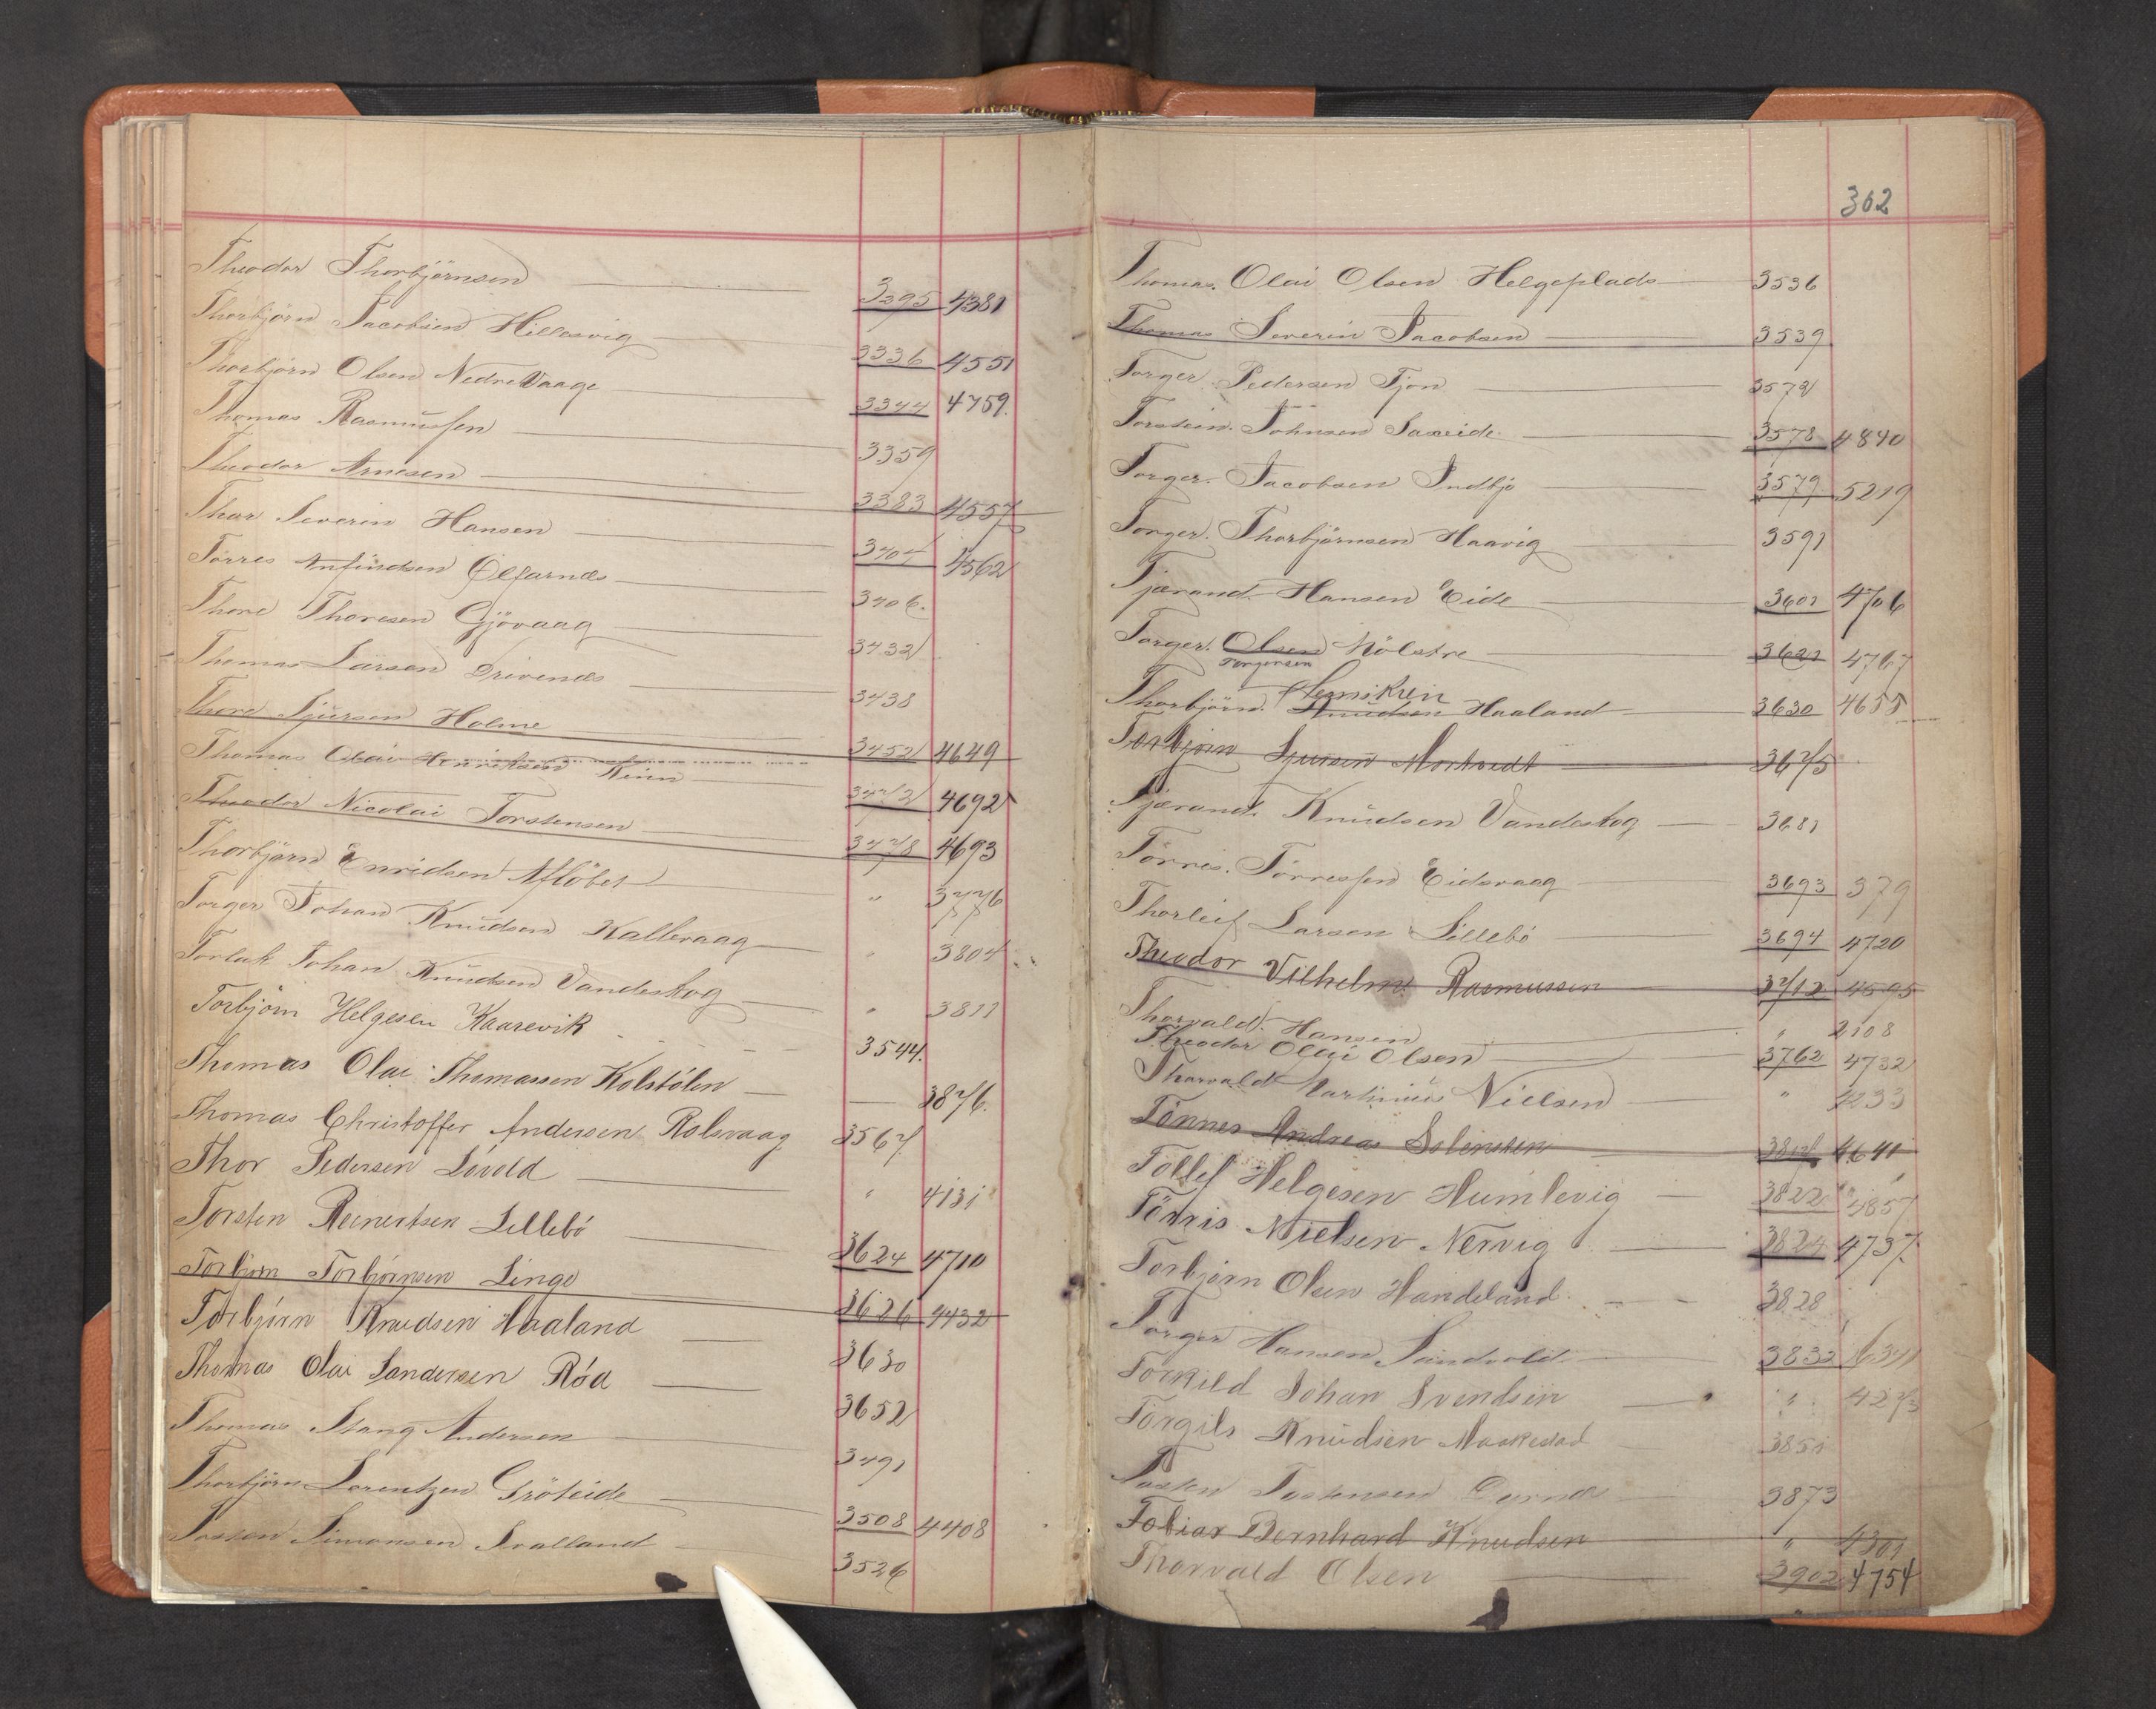 Theodor Thorbjörnsen 3295 4381
Thorbjörn Jacobsen Hillesvig 3336 4551
Thorbjörn Olsen NedreVaage 3344 4759.
Thomas Rasmussen 3359
Theodor Arnesen 3383 4557
Thor Severin Hansen 3404 4562
Törres Anfindsen Ølfarnæs 3406.
Thore Thoresen Gjövaag 3432
Thomas Larsen Drivenæs 3438
Thore Sjursen Holme 3452 4649
Thomas Olai Henriksen 3472 4692
Theodor Nicolai Torstensen 3478 4693
Thorbjörn Enridsen " 3776
Torger Johan Knudsen Kallevaag " 3804
Torlak Johan Knudsen Vandeskog " 3811
Torbjörn Helgesen Kaarevik 3544.
Thomas Olai Thomassen Kolstölen — 3876.
Thomas Christoffer Andersen Rolsvaag 3567
Thor Pedersen Lövold " 4131
Torsten Reinertsen Lillebö 3624 4710
Torbjörn Torbjörnsen Linge 3626 4432
Torbjörn Knudsen Haaland 3630
Thomas Olai Sandersen Röd 3652
Thomas Stang Andersen 3491
Thorbjörn Lorentzen Gröteide 3508 4408
Tosten Simonsen Svalland 3526
362
Thomas Olai Olsen Helgeplads 3536
Thomas Severin Jacobsen 3539
Torger Pedersen Tjon 3572
Torstein Johnsen Saxeide 3578 4840
Torger Jacobsen Indbjo 3579 5219
Torger Thorbjörnsen Haavig 3591
Tjærand Hansen Eide 3601 4706
Torger Olsen Mölstre 3621 4767
Torgersen
Henriksen
Thorbjörn Knudsen Haaland 3630 4655
Torbjörn Sjursen Mortvedt 3675
Tjærand Knudsen Vandeskog 3681
Törris Törressen Eidsvaag 3693 379
Thorleif Larsen Lillebö 3694 4720
Theodor Vilhelm Rasmussen 3712 4595
Thorvald Hansen " 2108
Theodor Olai Olsen 3762 4732
Thorvald Martinius Nielsen " 4233
Tönnes Andreas 4641
Tollef Helgesen Humlevig 3822 4857
Törris Nielsen Nervig 3824 4737
Torbjörn Olsen Handeland 3828
Torger Hansen Sandvold 3832
Torkild Johan Svendsen " 4273
Torgils Knudsen 3851
Tosten Tostensen 3873
Tobias Bernhard Knudsen " 4301
Thorvald Olsen 3902 4754